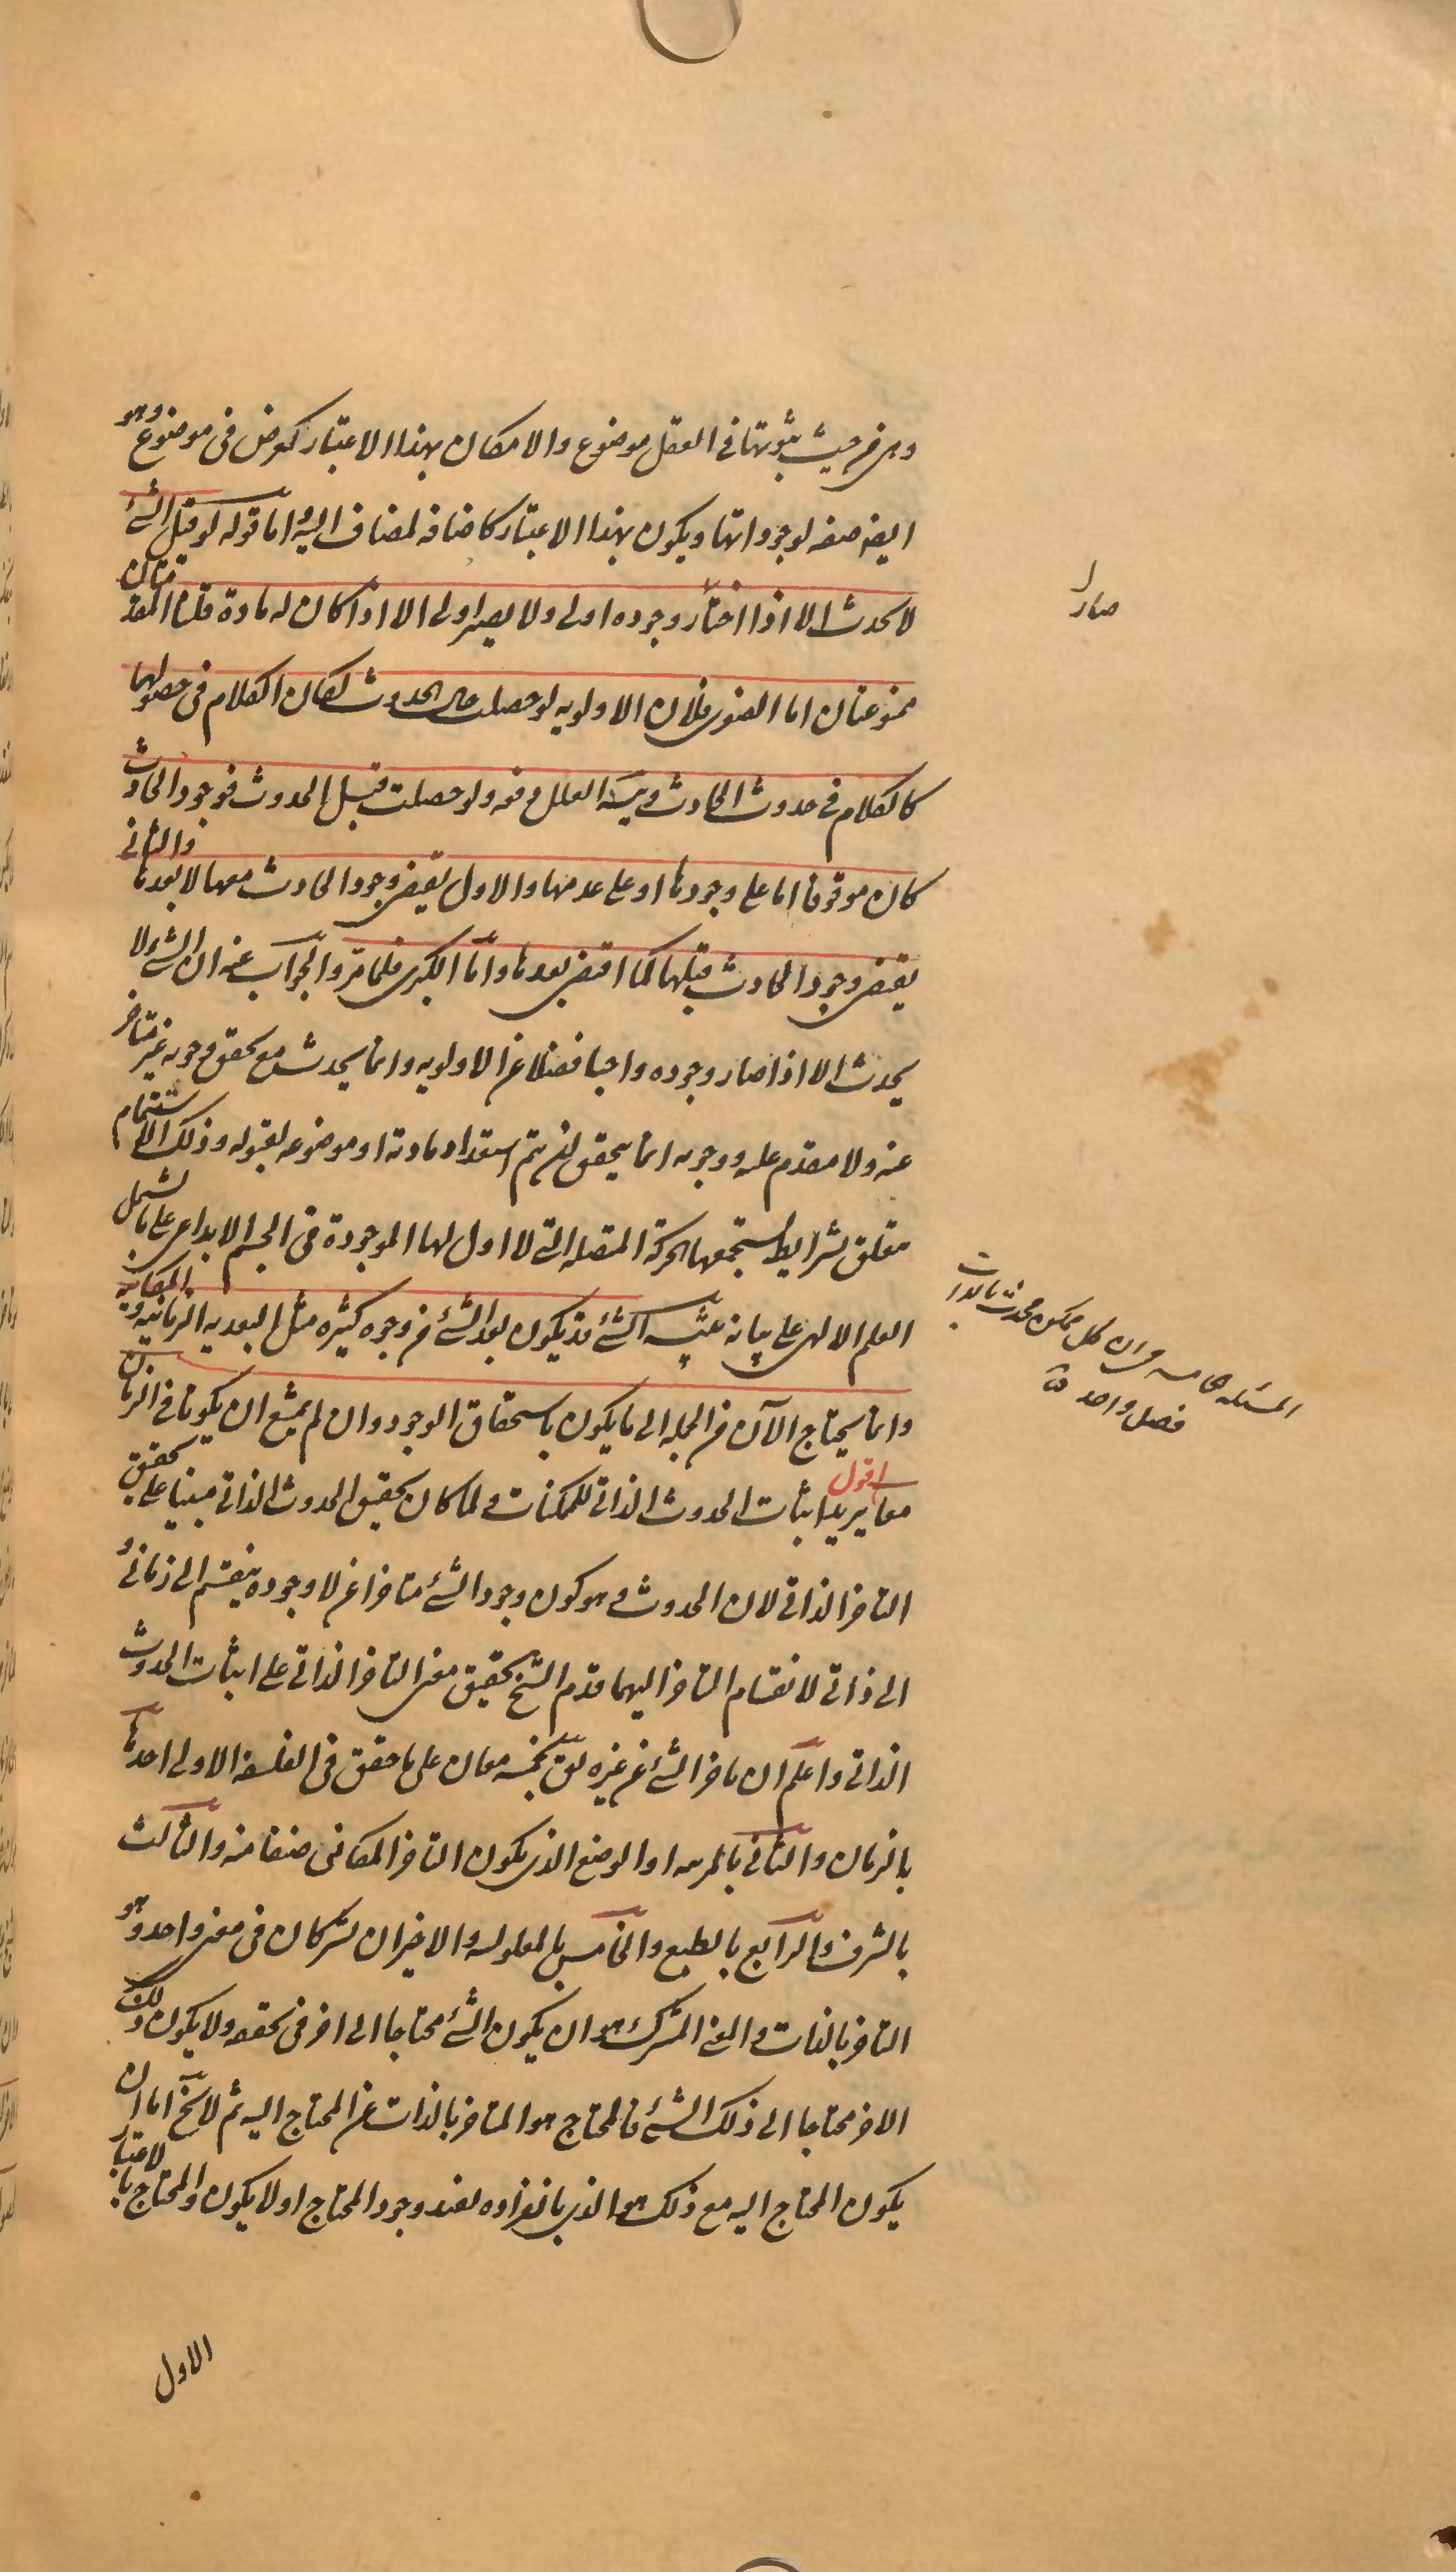 وهى من حيث ثبوتها فى العقل موضوع والامكان بهذا الاعتبار كعرض فى موضوع وهو
ايضا صفه لوجوداتها ويكون بهذا الاعتبار كاضافه لمضاف اليه واما قوله لو قيل الشئ
لا يحدث الا اذا اختار وجوده اولى ولا يصير اولى الا اذا كان له مادة قلنا المقدمتان
ممنوعتان اما الصغرى فلان الاولويه لو حصلت حال الحدوث لكان الكلام فى حصولها
كالكلام فى حدوث الحادث العلل دفعه ولو حصلت قبل الحدوث فوجود الحادث
كان موقوفا اما على وجودها او على عدمها والاول يقتضى وجود الحادث معها لا بعدها والثانى
يقتضى وجود الحادث قبلها كما اقتضى بعدها واما الكبرى فلما مر والجواب عنه ان الشئ لا
يحدث الا اذا صار وجوده واجبا فضلا عن الاولويه وانما يحدث مع تحقق وجوبه غير متاخر
عنه ولا مقدم عليه ووجوبه انما يتحقق لئن يتم استعداد مادته او موضوعه لقبوله وذلك الاستتمام
متعلق بشرايط يستجمعها الحركة المتصله التى لا اول لها الموجودة فى الجسم الابداعى على ما يشتمل
العلم الالهى على بيانه الشئ قد يكون بعد الشئ من وجوه كثيره مثل البعديه الزمانيه والمكانيه
وانما يحتاج الآن من الجمله الى ما يكون باستحقاق الوجود وان لم يمتنع ان يكونا فى الزمان
معا اقول يريد اثبات الحدوث الذاتى للممكنات ولما كان تحقيق الحدوث الذاتى مبنيا على تحقيق
التاخر الذاتى لان الحدوث وهو كون وجود الشئ متاخرا عن لا وجوده ينقسم الى زمانى و
الى ذاتى لانقسام التاخر اليهما قدم الشيخ تحقيق معنى التاخر الذاتى على اثبات الحدوث
الذاتى واعلم ان تاخر الشئ عن غيره يق بخمسه معان على ما حقق فى الفلسفه الاولى احدها
بالزمان والثانى بالمرتبه او الوضع الذى يكون التاخر المكانى صنفا منه والثالث
بالشرف والرابع بالطبع والخامس بالمعلوليه والاخيران يشتركان فى معنى واحد وهو
التاخر بالذات والمعنى المشترك هو ان يكون الشئ محتاجا الى اخر فى تحققه ولا يكون ذلك
الاخر محتاجا الى ذلك الشئ فالمحتاج هو المتاخر بالذات عن المحتاج اليه ثم لا يخ اما ان
يكون المحتاج اليه مع ذلك هو الذى بانفراده يفيد وجود المحتاج او لا يكون والمحتاج بالاعتبار
الاول
صار
المسئله الخامسه فى ان كل ممكن محدث بالذات
فصل واحد